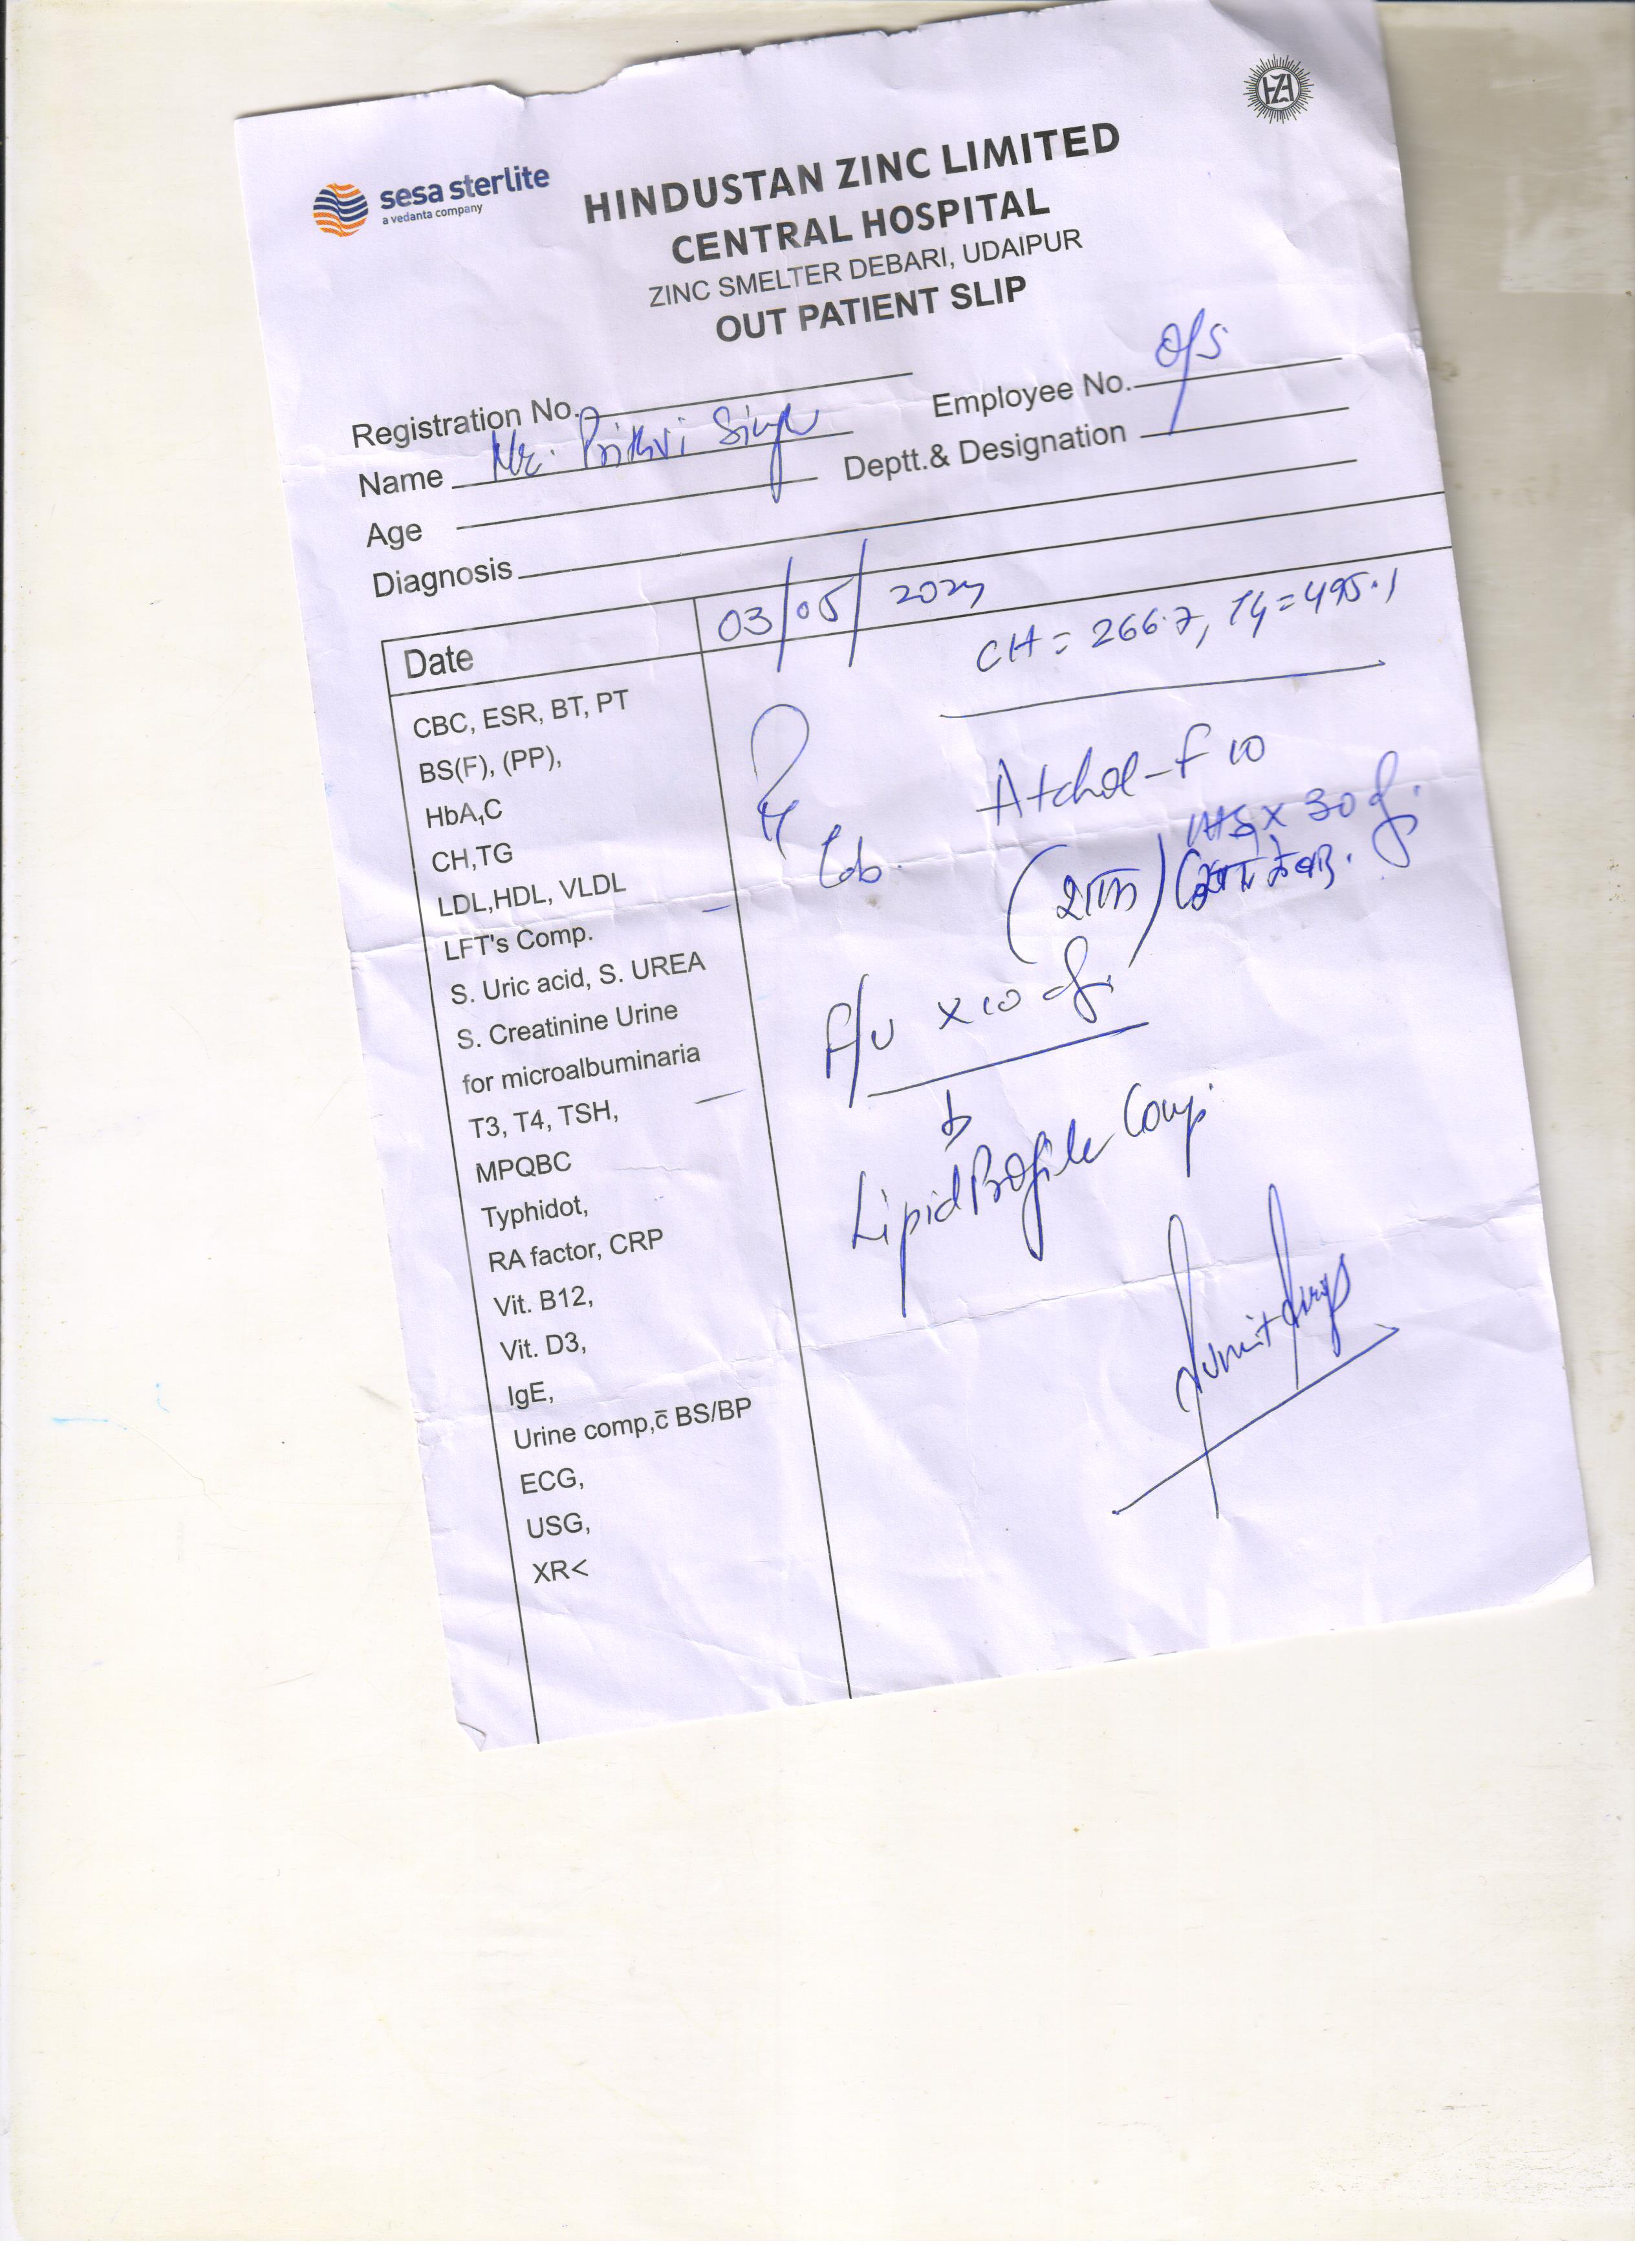 HZL
sesa sterlite
a vedanta company
HINDUSTAN ZINC LIMITED
CENTRAL HOSPITAL
ZINC SMELTER DEBARI, UDAIPUR
OUT PATIENT SLIP
Registration No.
Employee No. O/S
Name Mr. Prithvi Singh
Deptt.& Designation
Age
Diagnosis
Date 03/05/2024
CH = 266.7, TG = 495.1
CBC, ESR, BT, PT
BS(F), (PP),
HbA,C
CH,TG
LDL,HDL, VLDL
LFT's Comp.
S. Uric acid, S. UREA
S. Creatinine Urine
for microalbuminaria
T3, T4, TSH,
MPQBC
Typhidot,
RA factor, CRP
Vit. B12,
Vit. D3,
IgE,
Urine comp,c̄ BS/BP
ECG,
USG,
XR<
Rx
Tab. Atchol-F 10
x 30 d.
(रात)
F/U x 10 d.
Lipid Profile Comp.